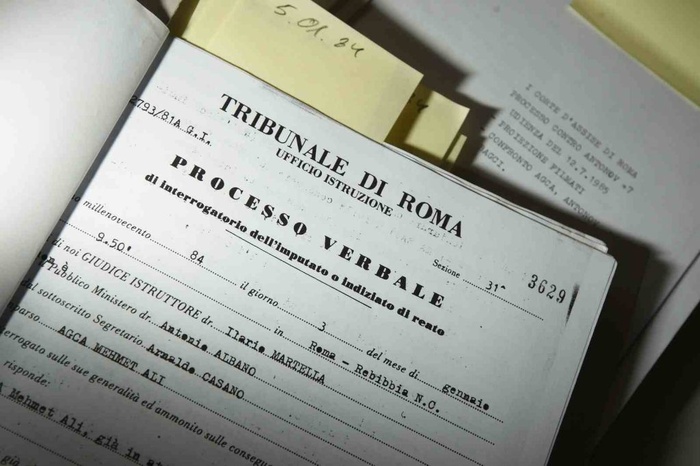 5.01.84
TRIBUNALE DI ROMA
UFFICIO ISTRUZIONE
2793/81A G.I.
PROCESSO VERBALE
di interrogatorio dell'imputato o indiziato di reato
Sezione 31^
3629
millenovecento 84 il giorno 3 del mese di gennaio
9.50' in Roma - Rebibbia N.C.
di noi GIUDICE ISTRUTTORE dr. Ilario MARTELLA
Pubblico Ministero dr. Antonio ALBANO
dal sottoscritto Segretario Arnaldo CASANO
parso AGCA MEHMET ALI
errogato sulle sue generalità ed ammonito sulle consegue
risponde:
Mehmet Ali, già in at
già
I CORTE D'ASSISE DI ROMA
PROCESSO CONTRO ANTONOV +7
UDIENZA DEL 12.7.1985
PROIEZIONE FILMATI
CONFRONTO AGCA, ANTONOV
AGCI.